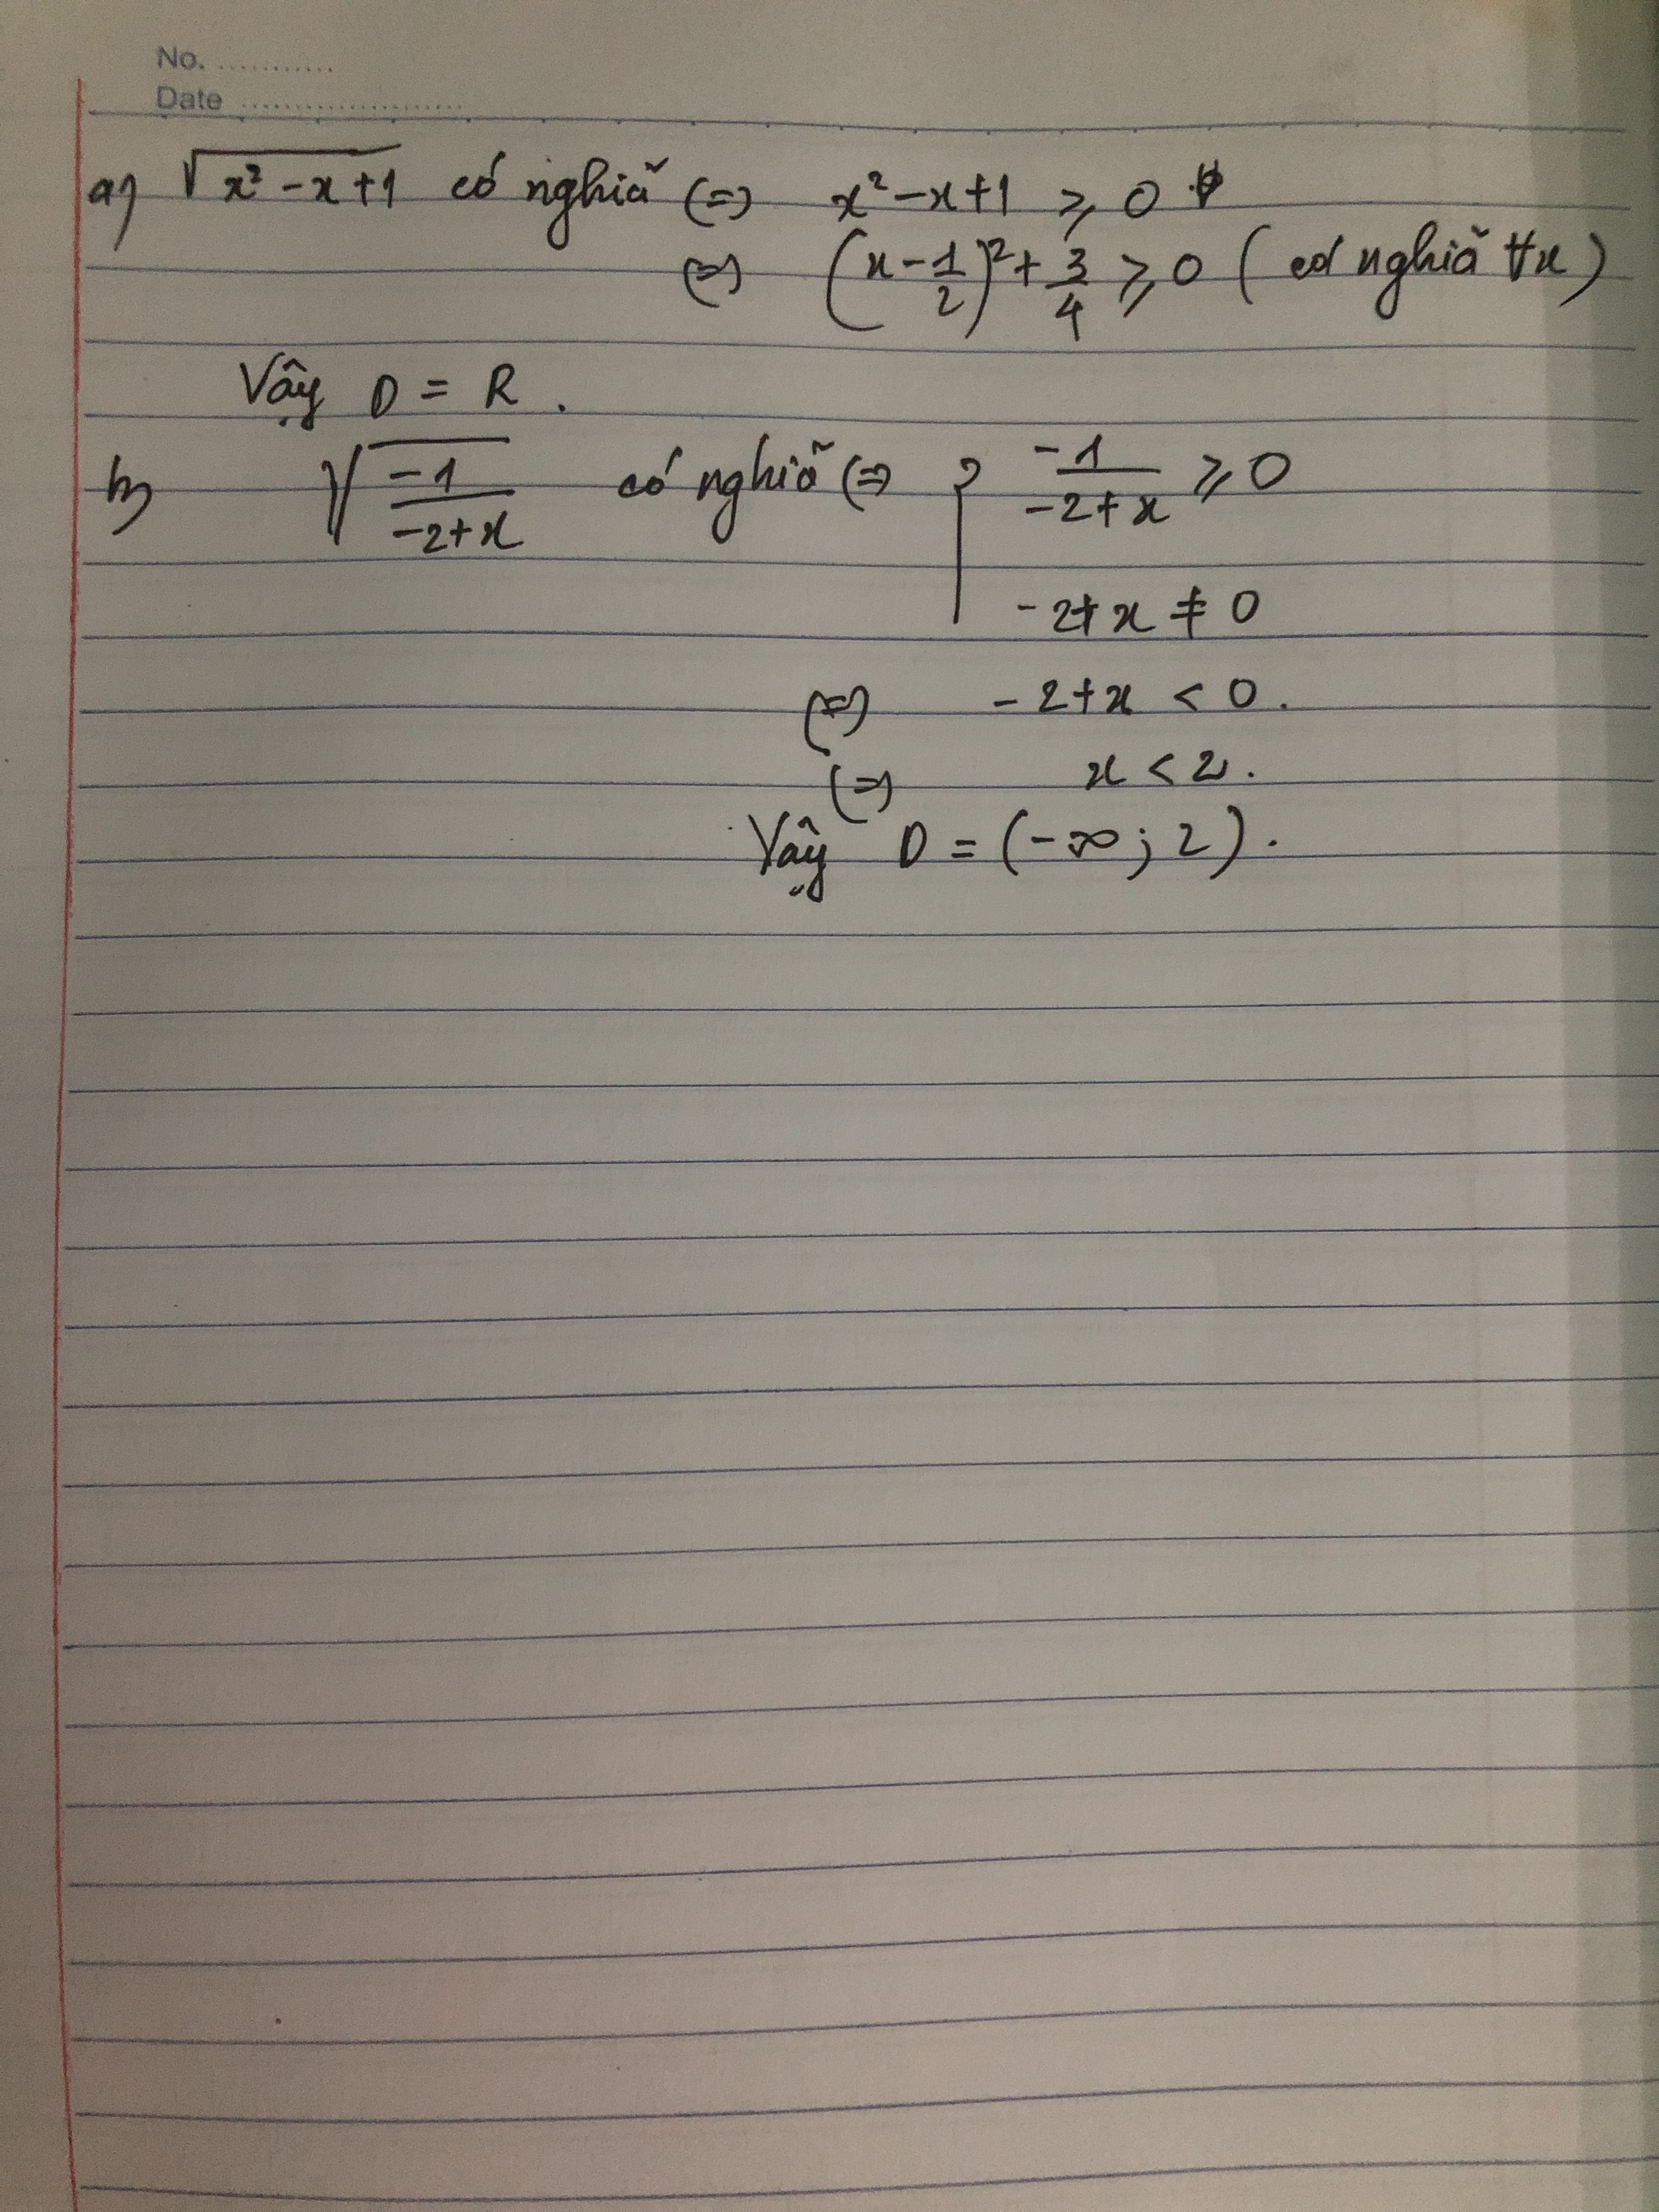 No. ...........
Date ......................
a) √(x² - x + 1) có nghĩa (=) x² - x + 1 ⩾ 0
(=) (x - 1/2)² + 3/4 ⩾ 0 (có nghĩa ∀x)
Vậy D = R.
b) √(-1/(-2+x)) có nghĩa (=) { -1/(-2+x) ⩾ 0
-2+x ≠ 0
(=) -2+x < 0.
(=) x < 2.
Vậy D = (-∞; 2).